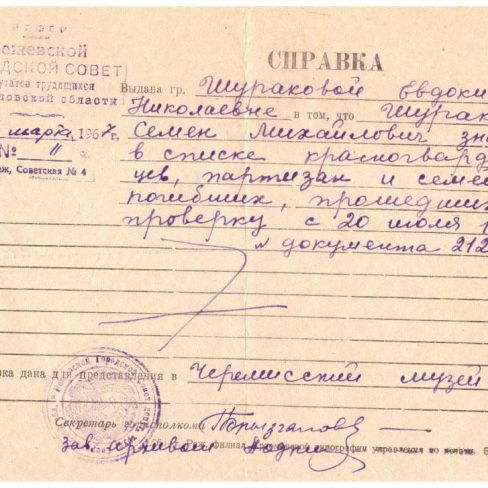 РСФСР
ежевской
ДСКОЙ СОВЕТ
путатов трудящихся
ловской области
марта 1967 г.
№ 11
еж, Советская № 4
СПРАВКА
Выдана гр. Шураковой Евдоки
Николаевне в том, что Шурак
Семен Михайлович зна
в списке красногвард
цев, партизан и семе
погибших, прошедших
проверку с 20 июля
№ документа 212
вка дана для представления в Черемисский музей
Секретарь горисполкома
зав. архивом